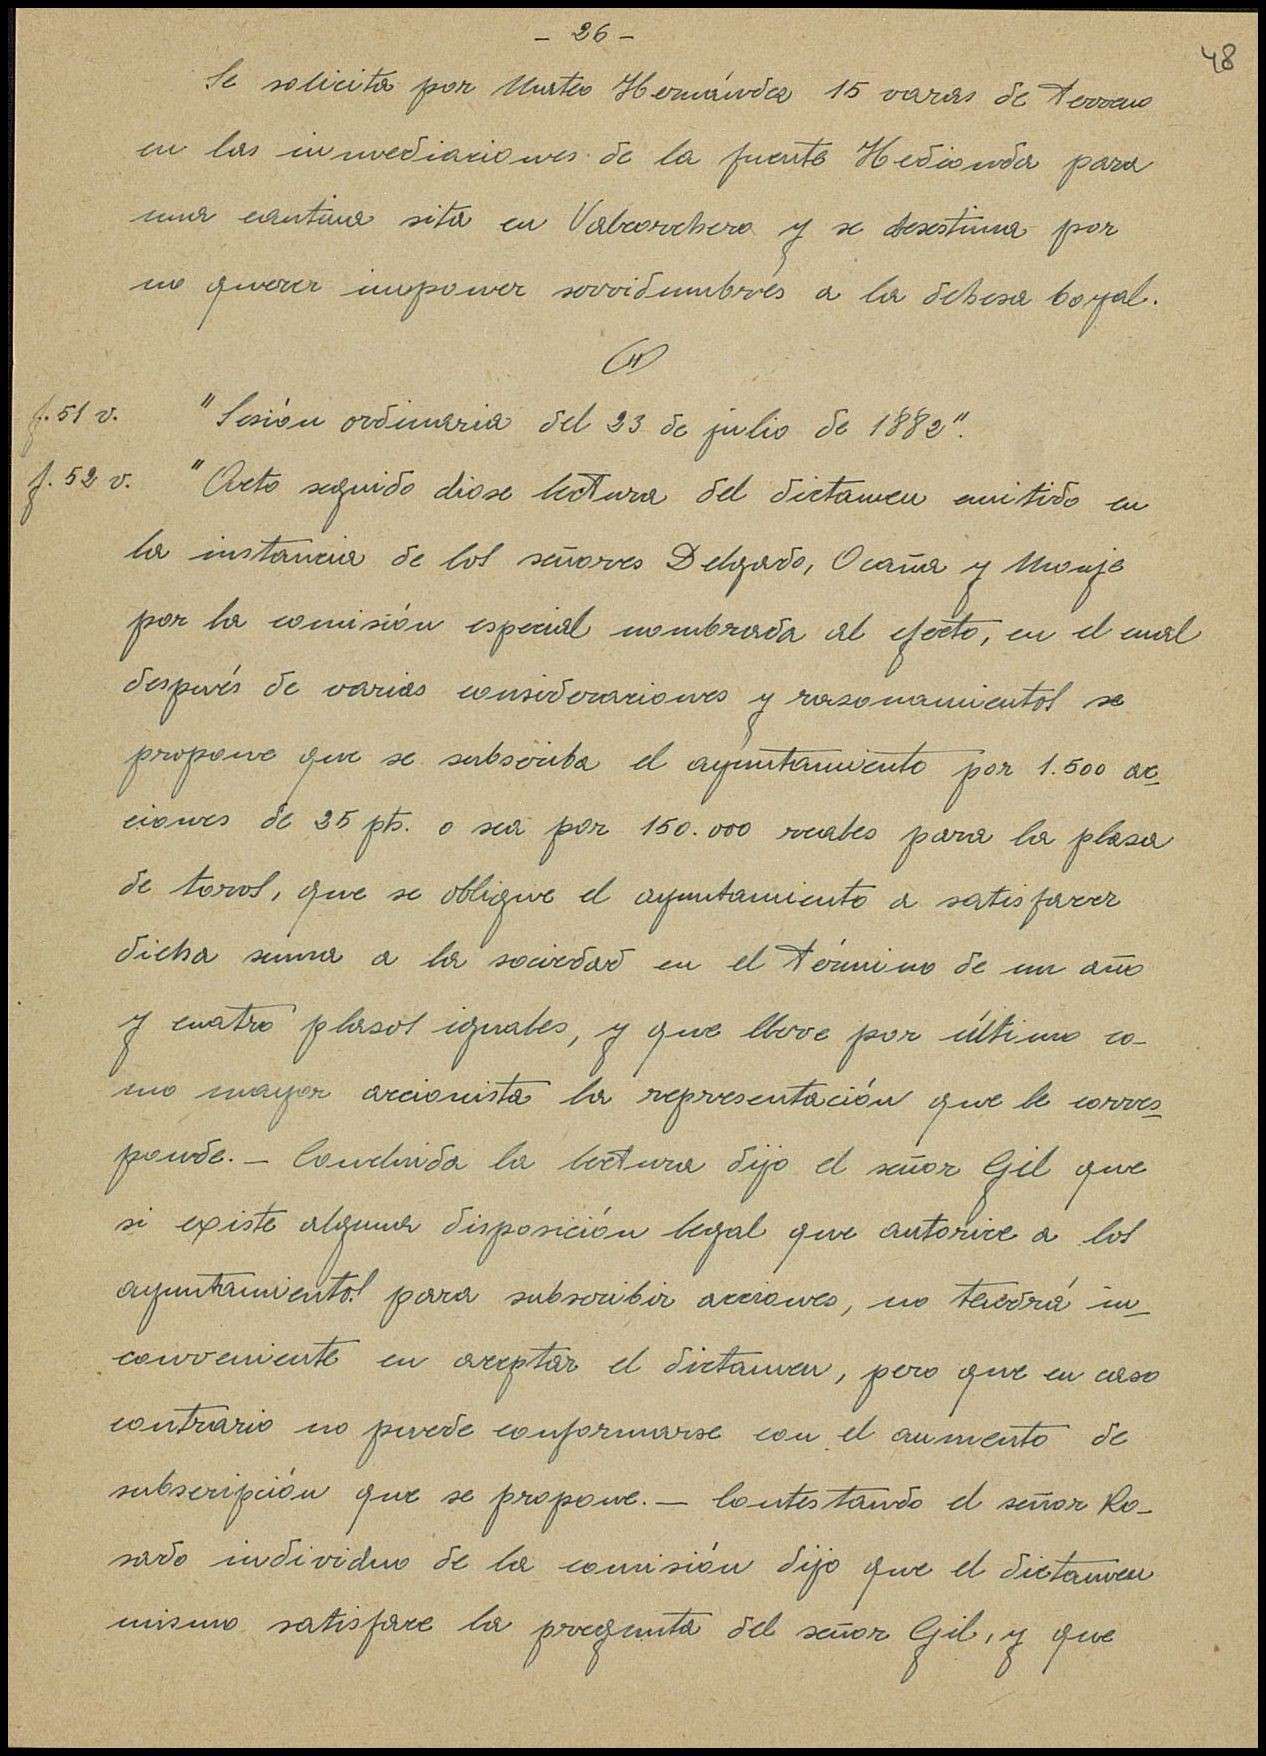 - 26 -
48
Se solicita por Mateo Hernández 15 varas de terreno
en las inmediaciones de la fuente Hedionda para
una cantina sita en Valcorchero y se desestima por
no querer imponer servidumbres a la dehesa boyal.
(")
f. 51 v. "Sesión ordinaria del 23 de julio de 1882".
f. 52 v. "Acto seguido diose lectura del dictamen emitido en
la instancia de los señores Delgado, Ocaña y Monje
por la comisión especial nombrada al efecto, en el cual
después de varias consideraciones y rasonamientos se
propone que se subscriba el ayuntamiento por 1.500 ac-
ciones de 25 pts. o sea por 150.000 reales para la plasa
de toros, que se obligue el ayuntamiento a satisfacer
dicha suma a la sociedad en el término de un año
y cuatro plasos iguales, y que lleve por último co-
mo mayor accionista la representación que le corres-
ponde. - Concluida la lectura dijo el señor Gil que
si existe alguna disposición legal que autorice a los
ayuntamientos para subscribir acciones, no tendrá in-
conveniente en aceptar el dictamen, pero que en caso
contrario no puede conformarse con el aumento de
subscripción que se propone. - Contestando el señor Ro-
sado individuo de la comisión dijo que el dictamen
mismo satisface la pregunta del señor Gil, y que